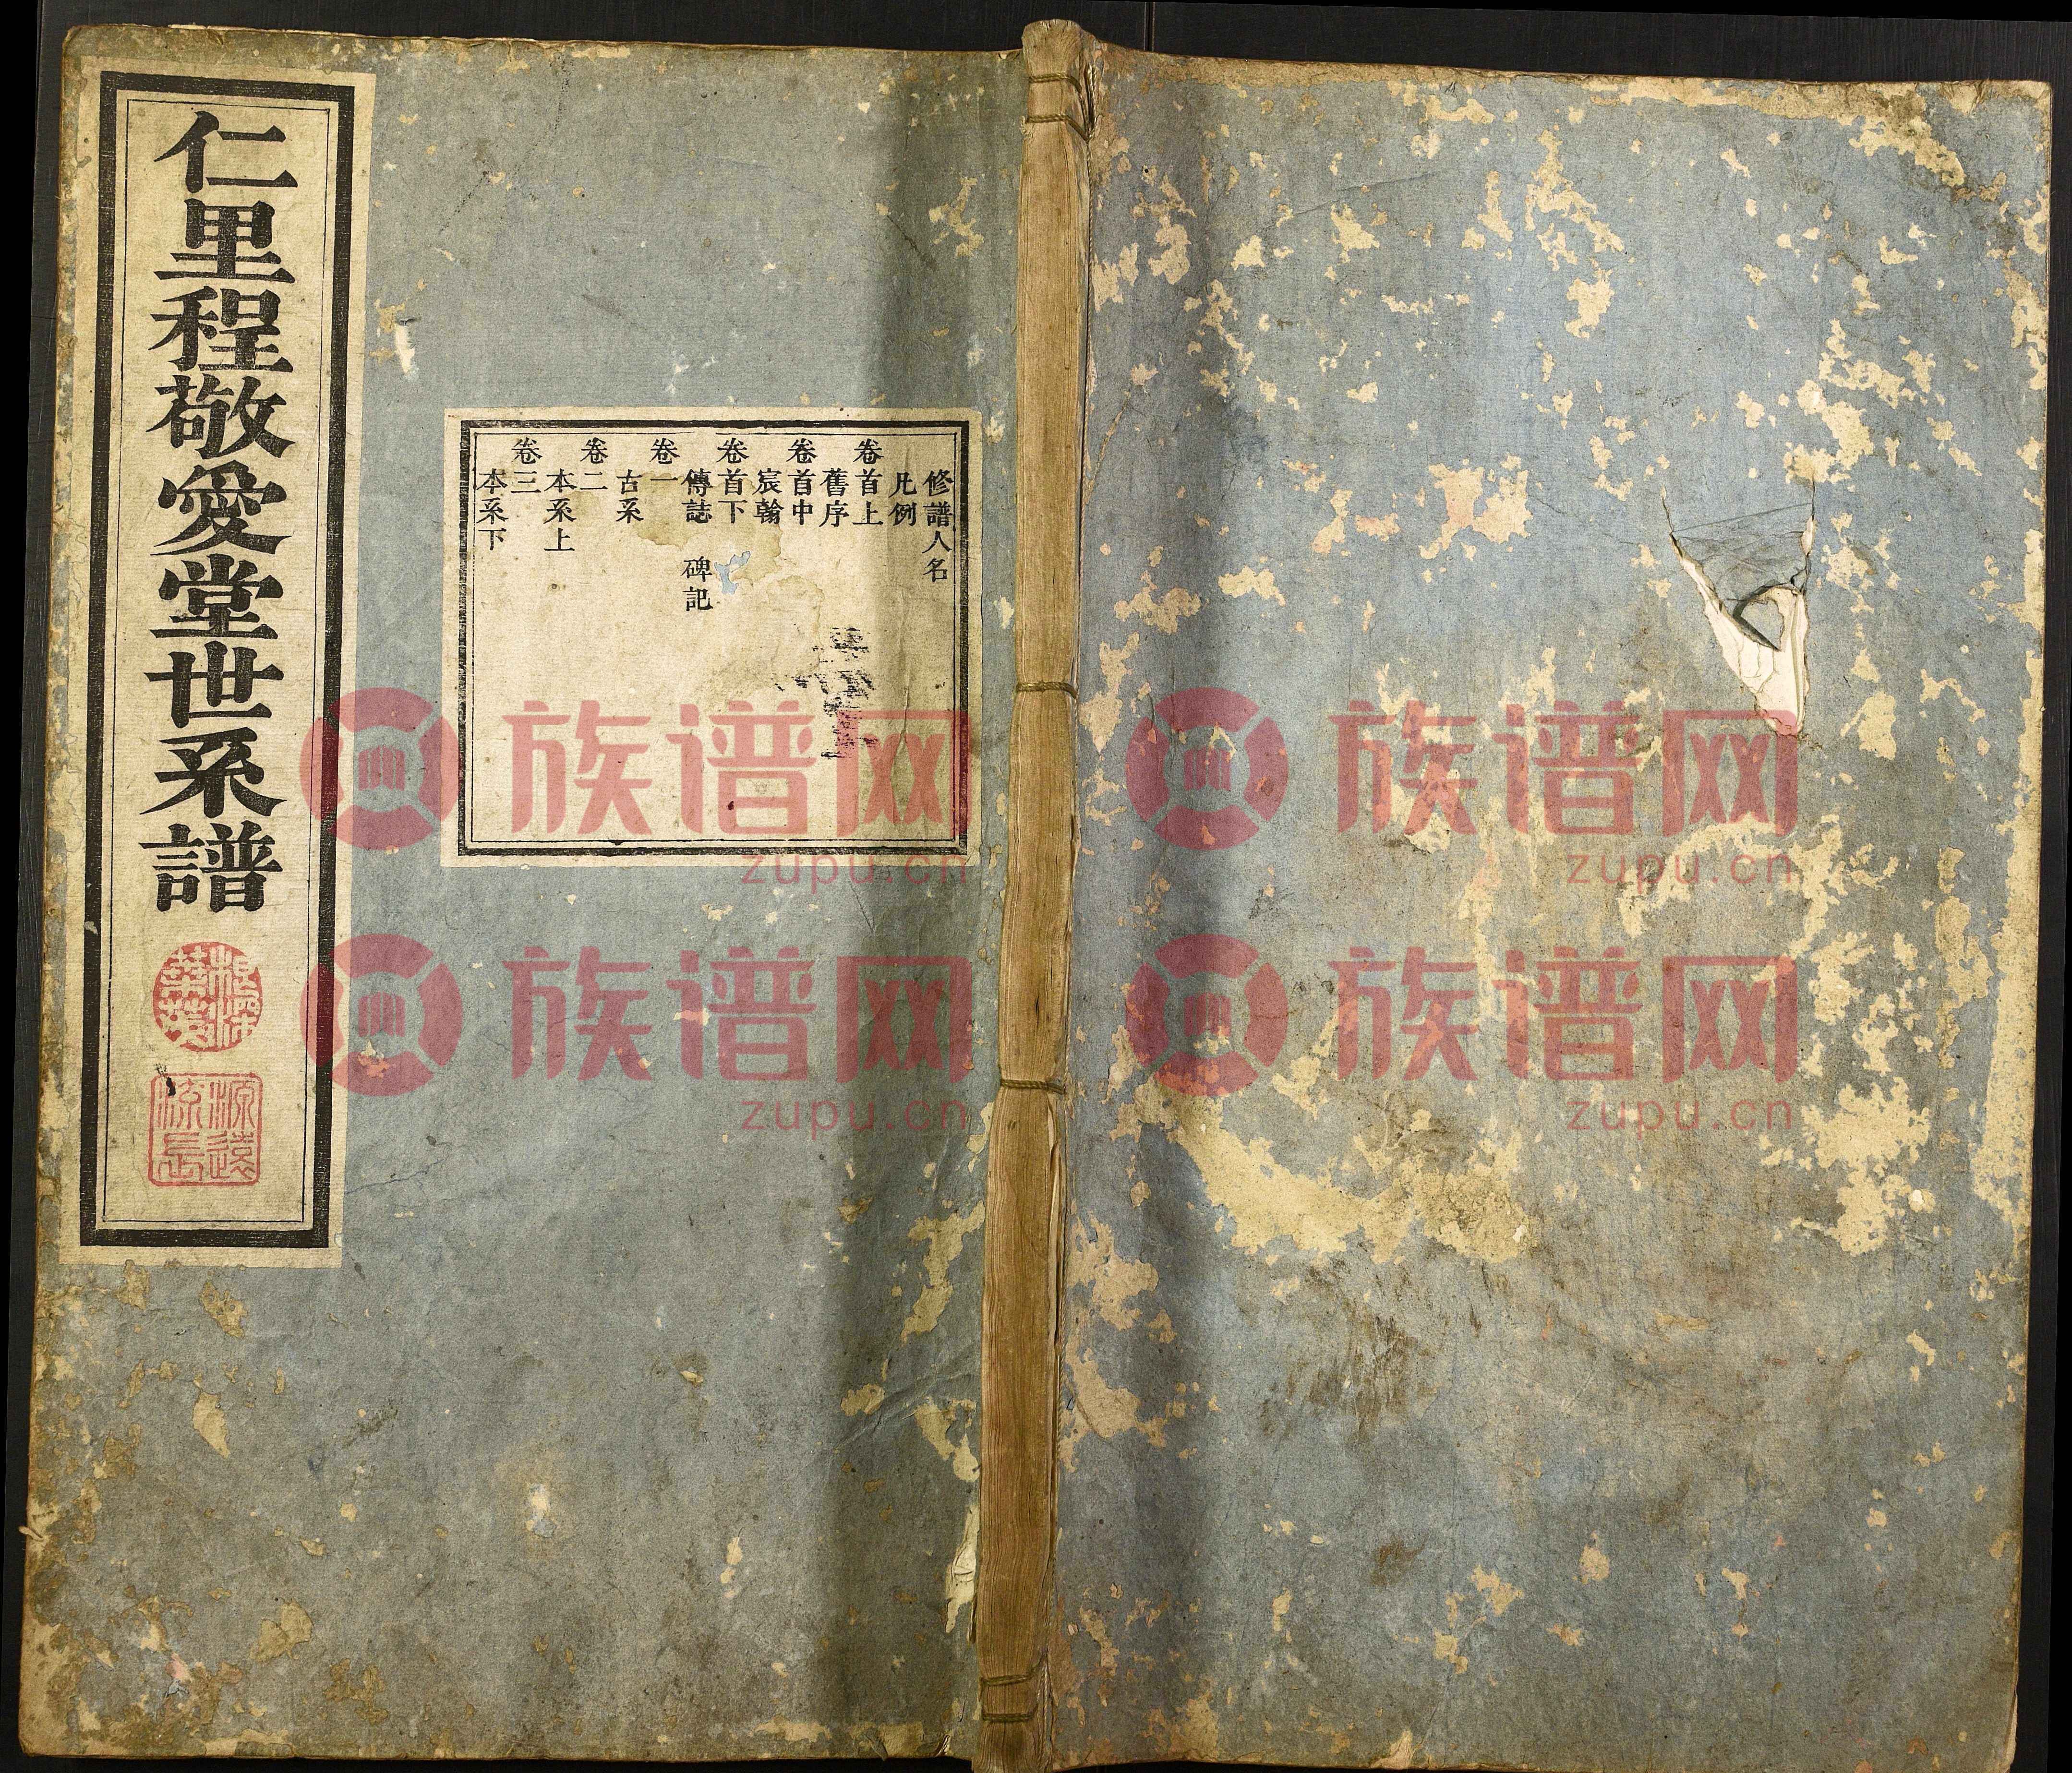 仁里程敬愛堂世系譜
根深
葉茂
源遠
流長
修譜人名
凡例
卷首上
舊序
卷首中
宸翰
卷首下
傳誌 碑記
卷一
古系
卷二
本系上
卷三
本系下
族谱网
zupu.cn
族谱网
zupu.cn
族谱网
zupu.cn
族谱网
zupu.cn